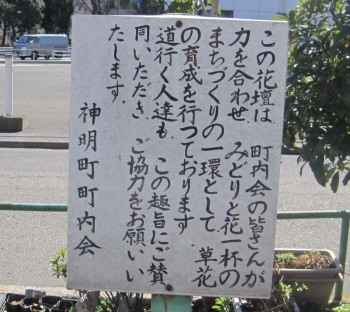 この花壇は　町内会の皆さんが
力を合わせ　みどりと花一杯の
まちづくりの一環として　草花
の育成を行っております
道行く人達も　この趣旨にご賛
同いただき　ご協力をお願いい
たします
神明町町内会